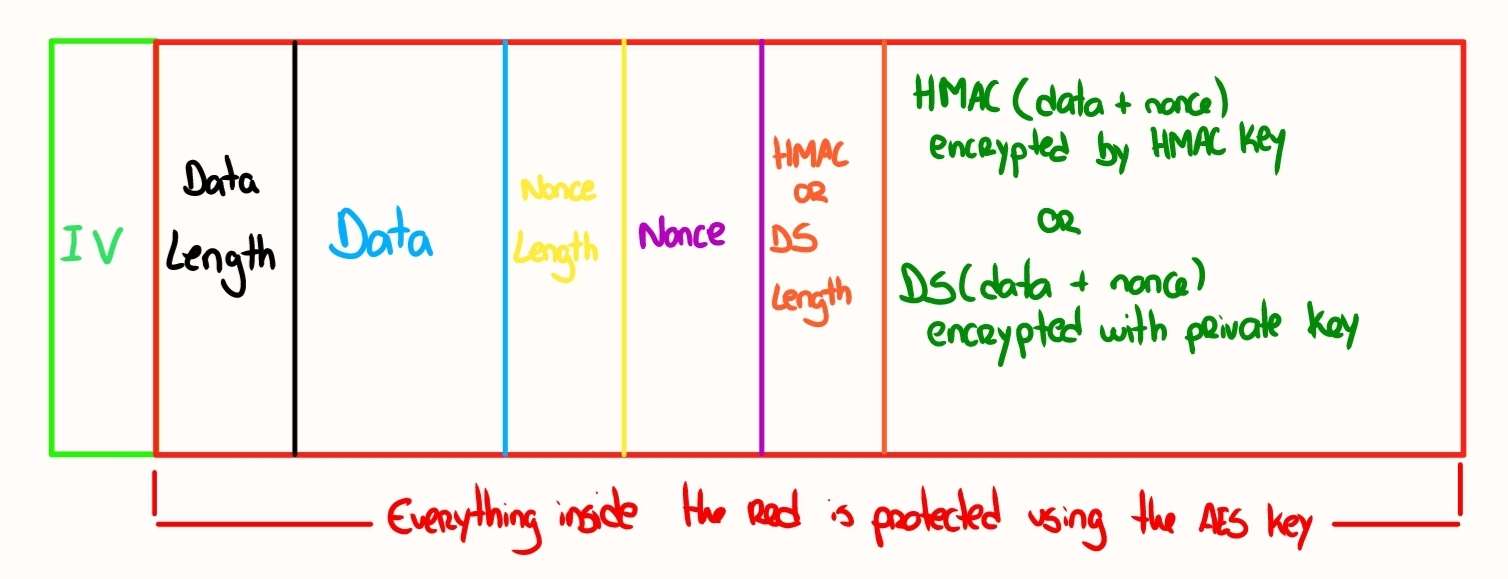 IV
Data
Length
Data
Nonce
Length
Nonce
HMAC
OR
DS
Length
HMAC (data + nonce)
encrypted by HMAC Key
OR
DS(data + nonce)
encrypted with private key
Everything inside the Red is protected using the AES key